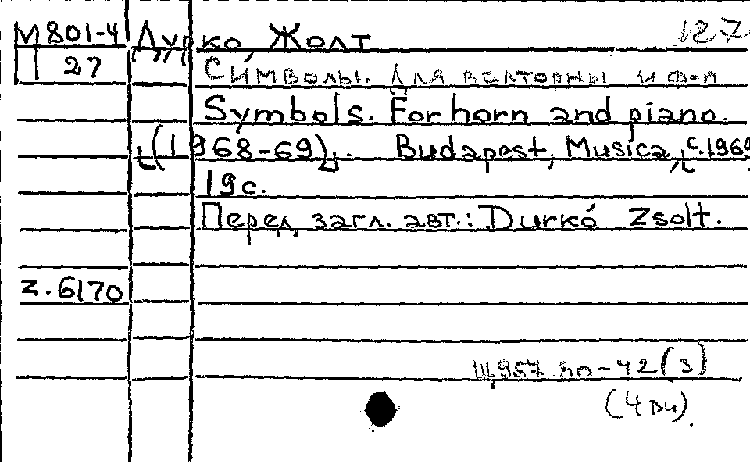 М801-4 Дурко, Жолт 127
27 Символы. Для валторны и ф-п
Symbols. For horn and piano.
[(1968-69)]. Budapest, Musica, [c.1969
19c.
Перед загл. авт.: Durkó Zsolt.
Z.6170
Щ957.50-42(3)
(4 ви).